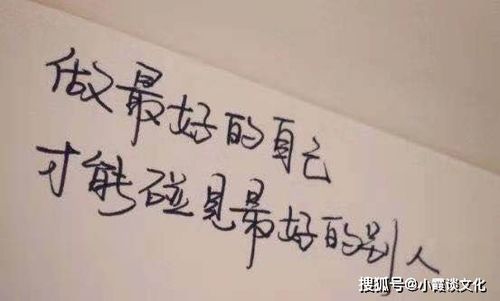 做最好的自己
才能碰见最好的别人
搜狐号@小霞谈文化